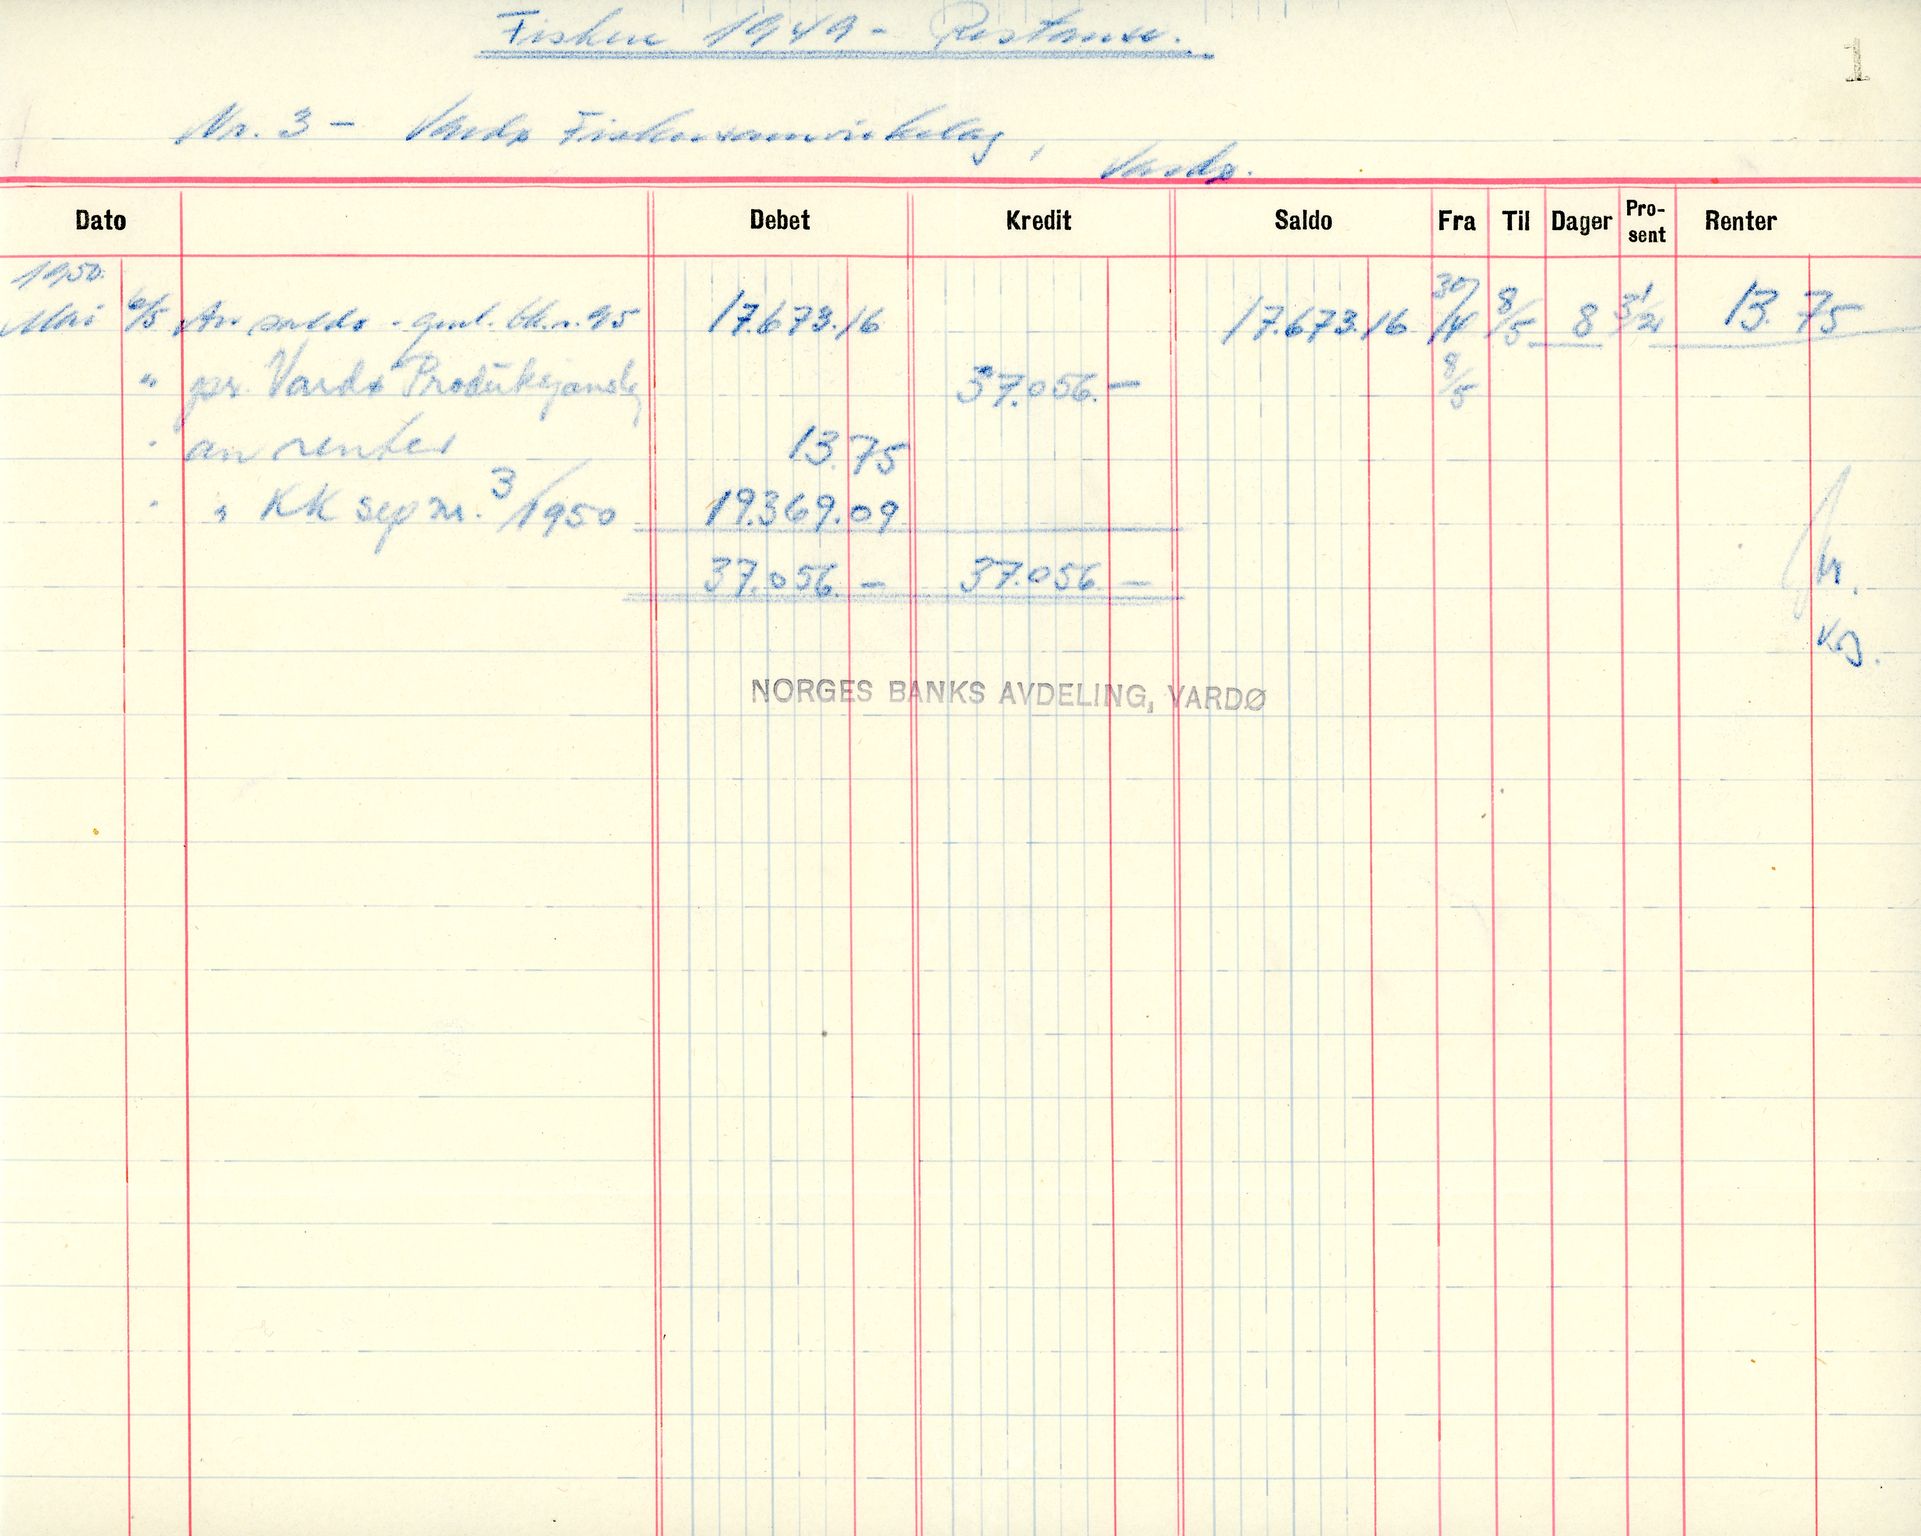 Fisken 1949 - Restanse.
1
Nr. 3 - Vardø Fiskersamvirkelag,
Vardø.
Dato Debet Kredit Saldo Fra Til Dager Pro-sent Renter
1950.
Mai 6/5 An saldo - gml. bk. s. 95 17.673.16 17.673.16 30/4 8/5 8 3 1/2 13.75
" pr. Vardø 37.056.- 8/5
" an renter 13.75
" " KK sep nr. 3/1950 19.369.09
37.056.- 37.056.-
NORGES BANKS AVDELING, VARDØ